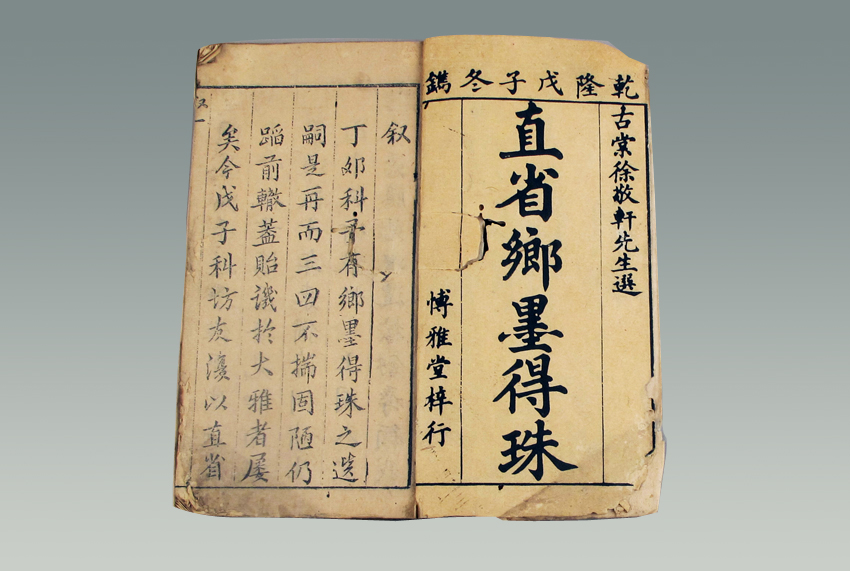 乾隆戊子冬鐫
古棠徐敬軒先生選
直省鄉墨得珠
博雅堂梓行
叙
丁卯科予有鄉墨得珠之選
嗣是再而三四不揣固陋仍
蹈前轍蓋貽譏於大雅者屡
矣今戊子科坊友復以直省
叙一